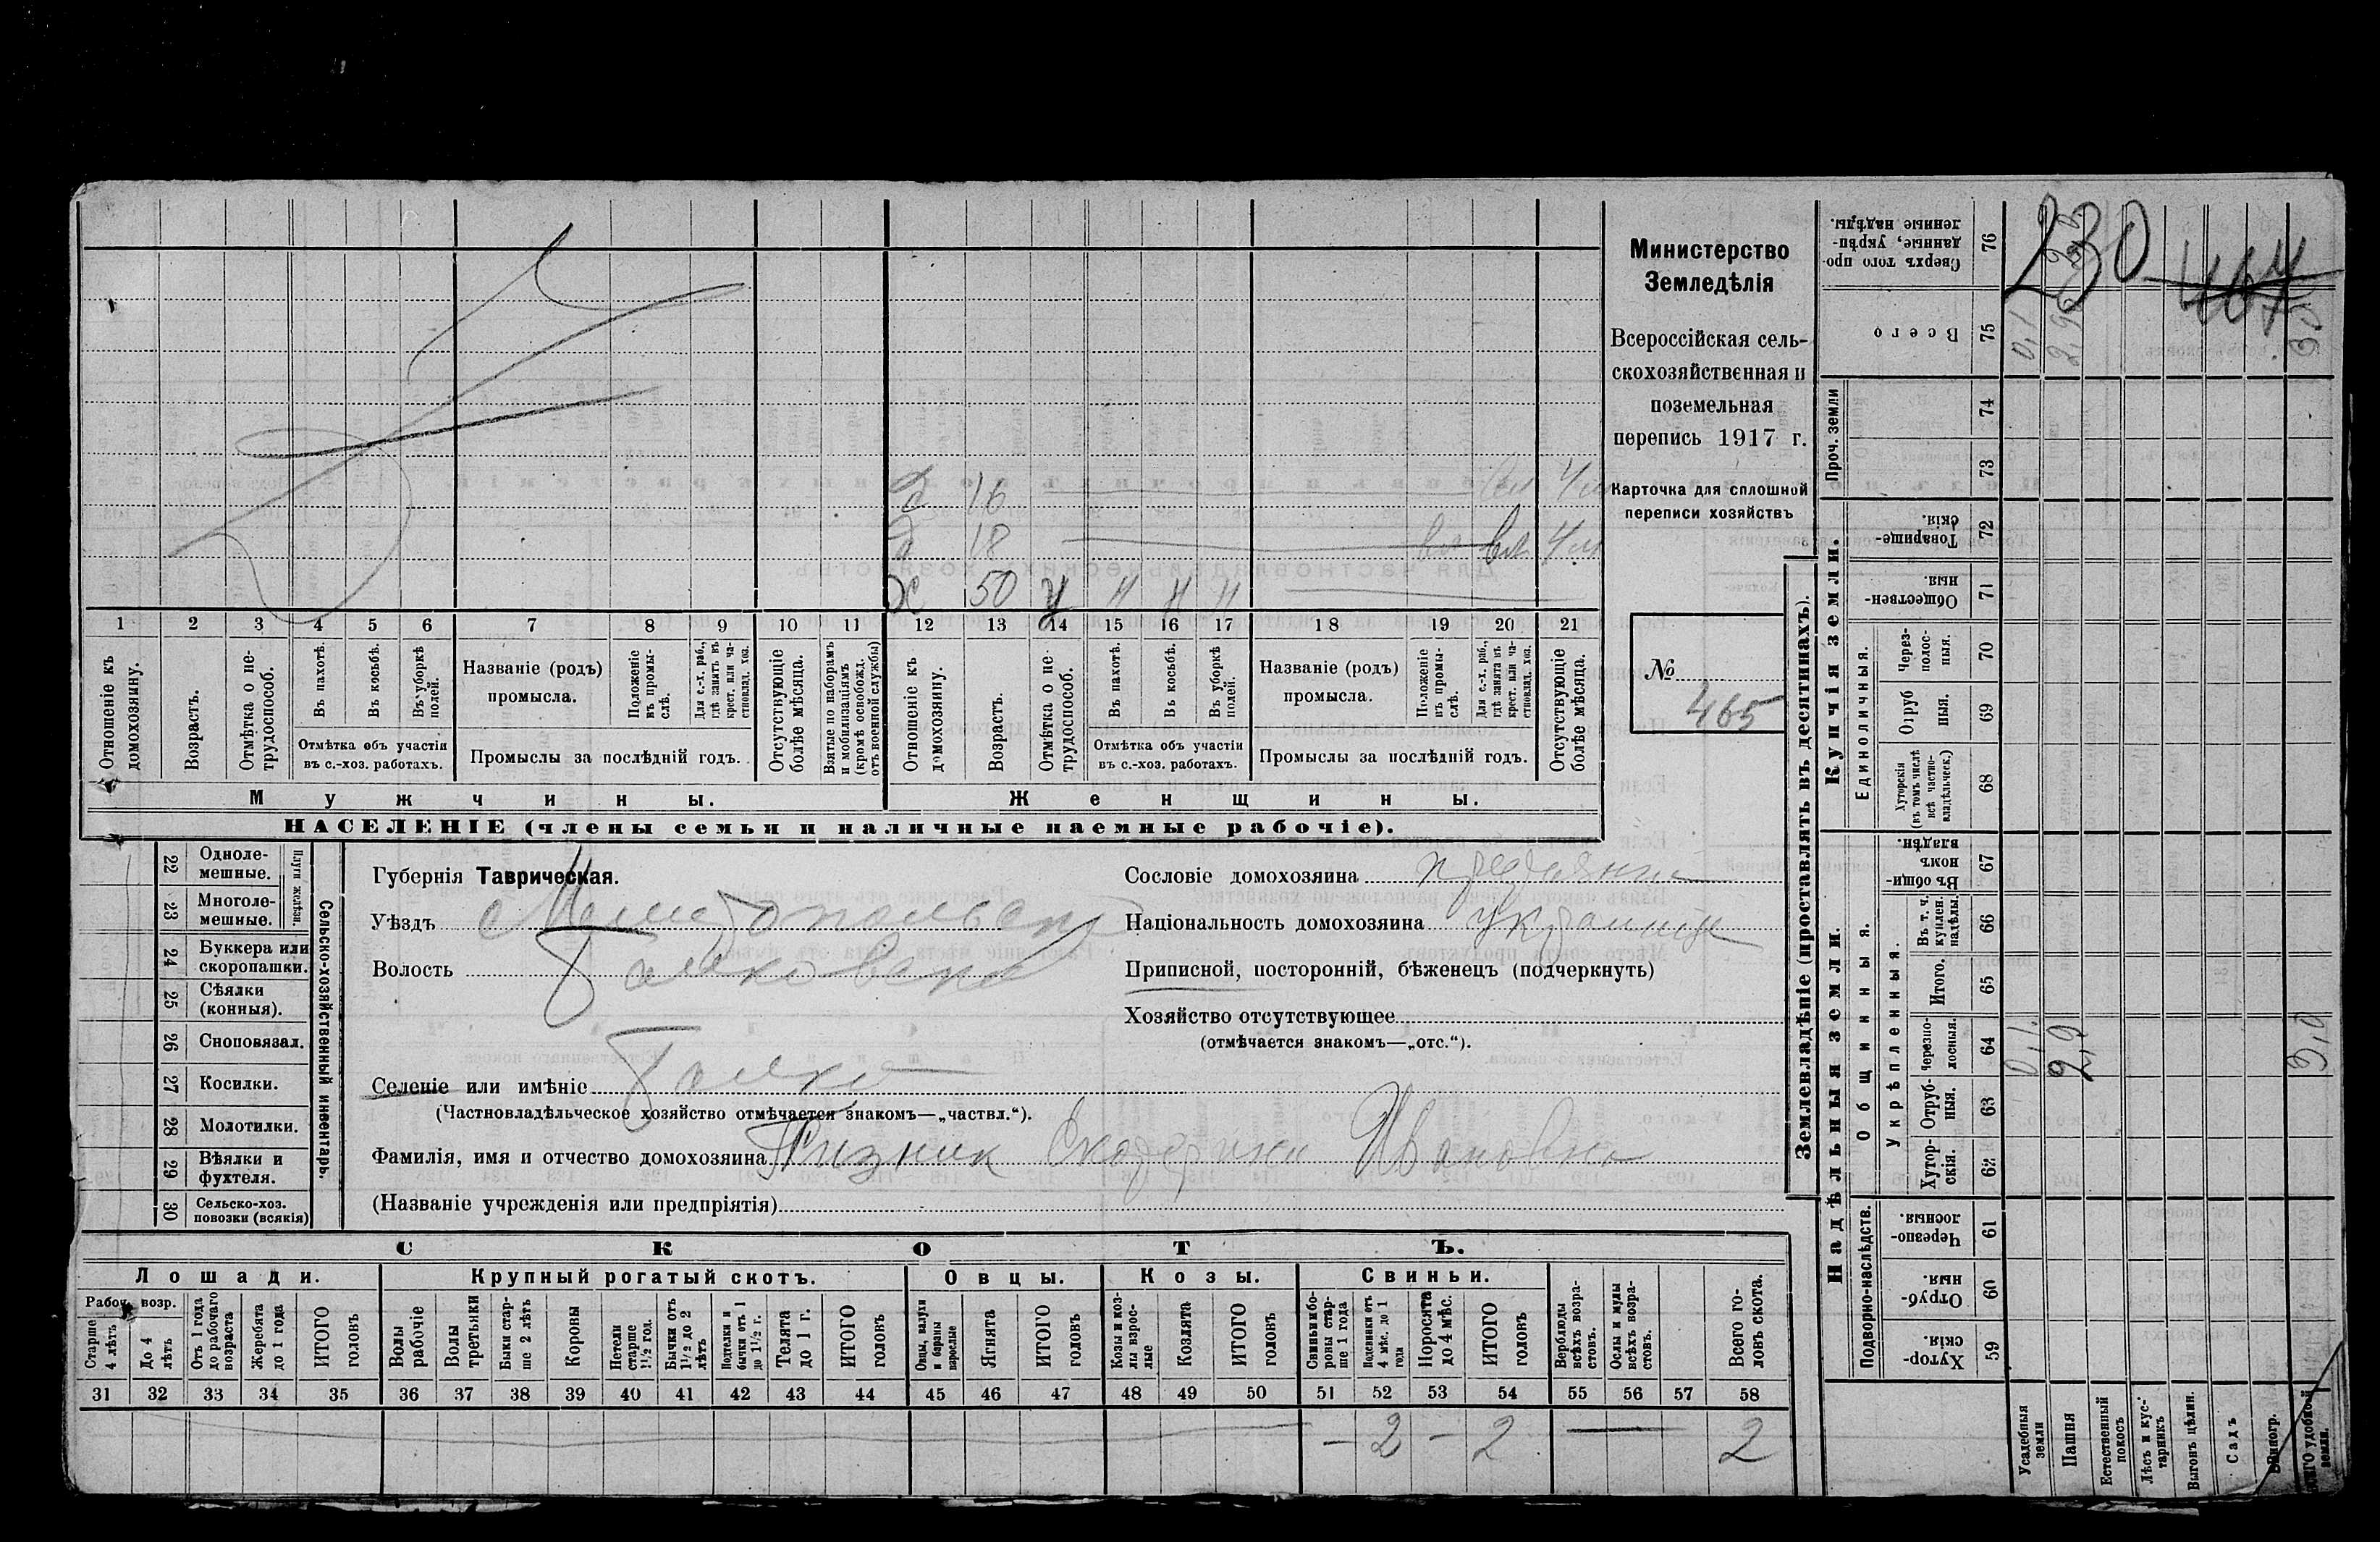 Министерство
Земледѣлія
Всероссійская сель-
скохозяйственная и
поземельная
перепись 1917 г.
Карточка для сплошной
переписи хозяйствъ
№
465
230
464
д 16 4 м
д 18 вл 4 м
х 50 у н н н
1 2 3 4 5 6 7 8 9 10 11 12 13 14 15 16 17 18 19 20 21
Отношеніе къ домохозяину.
Возрастъ.
Отмѣтка о не-трудоспособ.
Въ пахотѣ.
Въ косьбѣ.
Въ уборкѣ полей.
Отмѣтка объ участіи
въ с.-хоз. работахъ.
Названіе (родъ)
промысла.
Положеніе въ промы-слѣ.
Для с.-х. раб., гдѣ занятъ въ крест. или ча-стновлад. хоз.
Промыслы за послѣдній годъ.
Отсутствующіе болѣе мѣсяца.
Взятые по наборамъ и мобилизаціямъ (кромѣ освобожд. отъ военной службы)
Отношеніе къ домохозяину.
Возрастъ.
Отмѣтка о не-трудоспособ.
Въ пахотѣ.
Въ косьбѣ.
Въ уборкѣ полей.
Отмѣтка объ участіи
въ с.-хоз. работахъ.
Названіе (родъ)
промысла.
Положеніе въ промы-слѣ.
Для с.-х. раб., гдѣ занята въ крест. или ча-стновлад. хоз.
Промыслы за послѣдній годъ.
Отсутствующіе болѣе мѣсяца.
Мужчины.
Женщины.
НАСЕЛЕНІЕ (члены семьи и наличные наемные рабочіе).
Сельско-хозяйственный инвентарь.
Плуги желѣзн.
22 Однолемешные.
23 Многолемешные.
24 Буккера или скоропашки.
25 Сѣялки (конныя).
26 Сноповязал.
27 Косилки.
28 Молотилки.
29 Вѣялки и фухтеля.
30 Сельско-хоз. повозки (всякія)
Губернія Таврическая.
Уѣздъ Мелитопольск
Волость
Селеніе или имѣніе
(Частновладѣльческое хозяйство отмѣчается знакомъ—„частвл.“).
Фамилія, имя и отчество домохозяина Ризник Екатерина Ивановна
(Названіе учрежденія или предпріятія)
Сословіе домохозяина
Національность домохозяина украинц
Приписной, посторонній, бѣженецъ (подчеркнуть)
Хозяйство отсутствующее
(отмѣчается знакомъ—„отс.“).
СКОТЪ.
Лошади.
Крупный рогатый скотъ.
Овцы.
Козы.
Свиньи.
Рабоч. возр.
Старше 4 лѣтъ
До 4 лѣтъ
Отъ 1 года до рабочаго возраста
Жеребята до 1 года
ИТОГО головъ
Волы рабочіе
Волы третьяки
Быки стар-ше 2 лѣтъ
Коровы
Нетели старше 1½ год.
Бычки отъ 1½ до 2 лѣтъ
Подтелки и бычки отъ 1 до 1½ г.
Телята до 1 г.
ИТОГО головъ
Овцы, валухи и бараны взрослые
Ягнята
ИТОГО головъ
Козы и коз-лы взрос-лые
Козлята
ИТОГО головъ
Свиньи и бо-ровы стар-ше 1 года
Подсвинки отъ 4 мѣс. до 1 года
Поросята до 4 мѣс.
ИТОГО головъ
Верблюды всѣхъ возра-стовъ.
Ослы и мулы всѣхъ возра-стовъ.
Всего го-ловъ скота.
31 32 33 34 35 36 37 38 39 40 41 42 43 44 45 46 47 48 49 50 51 52 53 54 55 56 57 58
— 2 — 2 — 2
Землевладѣніе (проставлять въ десятинахъ).
Надѣльныя земли.
Купчія земли.
Проч. земли
Подворно-наслѣдств.
Общинныя.
Укрѣпленныя.
Единоличныя.
Сверхъ того про-данные, укрѣп-ленные надѣлы. 76
Всего 75
74
73
Товарище-скія. 72
Обществен-ныя 71
Через-полос-ныя. 70
Отруб ныя. 69
Хуторскія (въ томъ числѣ всѣ частно-владѣльческ.) 68
Въ общин-номъ владѣн. 67
Въ т. ч. куплен. надѣлы. 66
Итого. 65
Черезпо-лосныя. 64
Отруб-ныя. 63
Хутор-скія. 62
Черезпо-лосныя. 61
Отруб-ныя 60
Хутор-скія. 59
0,1 2,9
0,1 2,9 3,0
Усадебныя земли
Пашня
Естественный покосъ
Лѣсъ и кус-тарникъ
Выгонъ цѣлин.
Садъ
Виногр.
ИТОГО удобной земли.